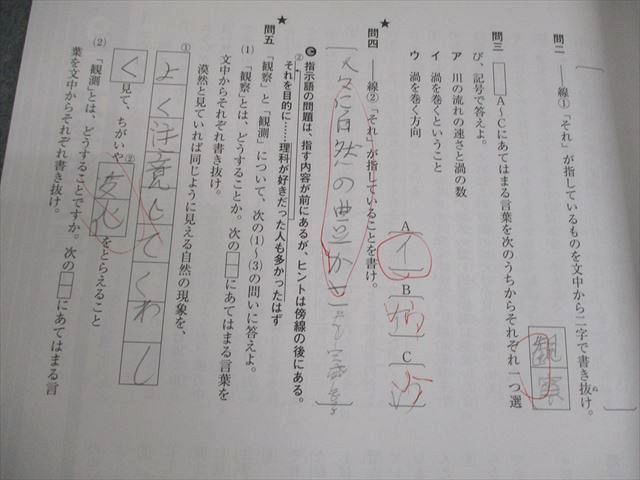 問二 ――線①「それ」が指しているものを文中から二字で書き抜け。
ぬ
観察
問三 □A〜Cにあてはまる言葉を次のうちからそれぞれ一つ選
び、記号で答えよ。
ア 川の流れの速さと渦の数
イ 渦を巻くということ
ウ 渦を巻く方向
A
イ
B
C
★
問四 ――線②「それ」が指していることを書け。
人々に自然の豊かさを
指示語の問題は、指す内容が前にあるが、ヒントは傍線の後にある。
②それを目的に……理科が好きだった人も多かったはず
★
問五 「観察」と「観測」について、次の(1)〜(3)の問いに答えよ。
(1) 「観察」とは、どうすることか。次の□にあてはまる言葉を
文中からそれぞれ書き抜け。
漠然と見ていれば同じように見える自然の現象を、
①
よく注意してくわし
く見て、ちがいや②変化をとらえること
(2) 「観測」とは、どうすることですか。次の□にあてはまる言
葉を文中からそれぞれ書き抜け。